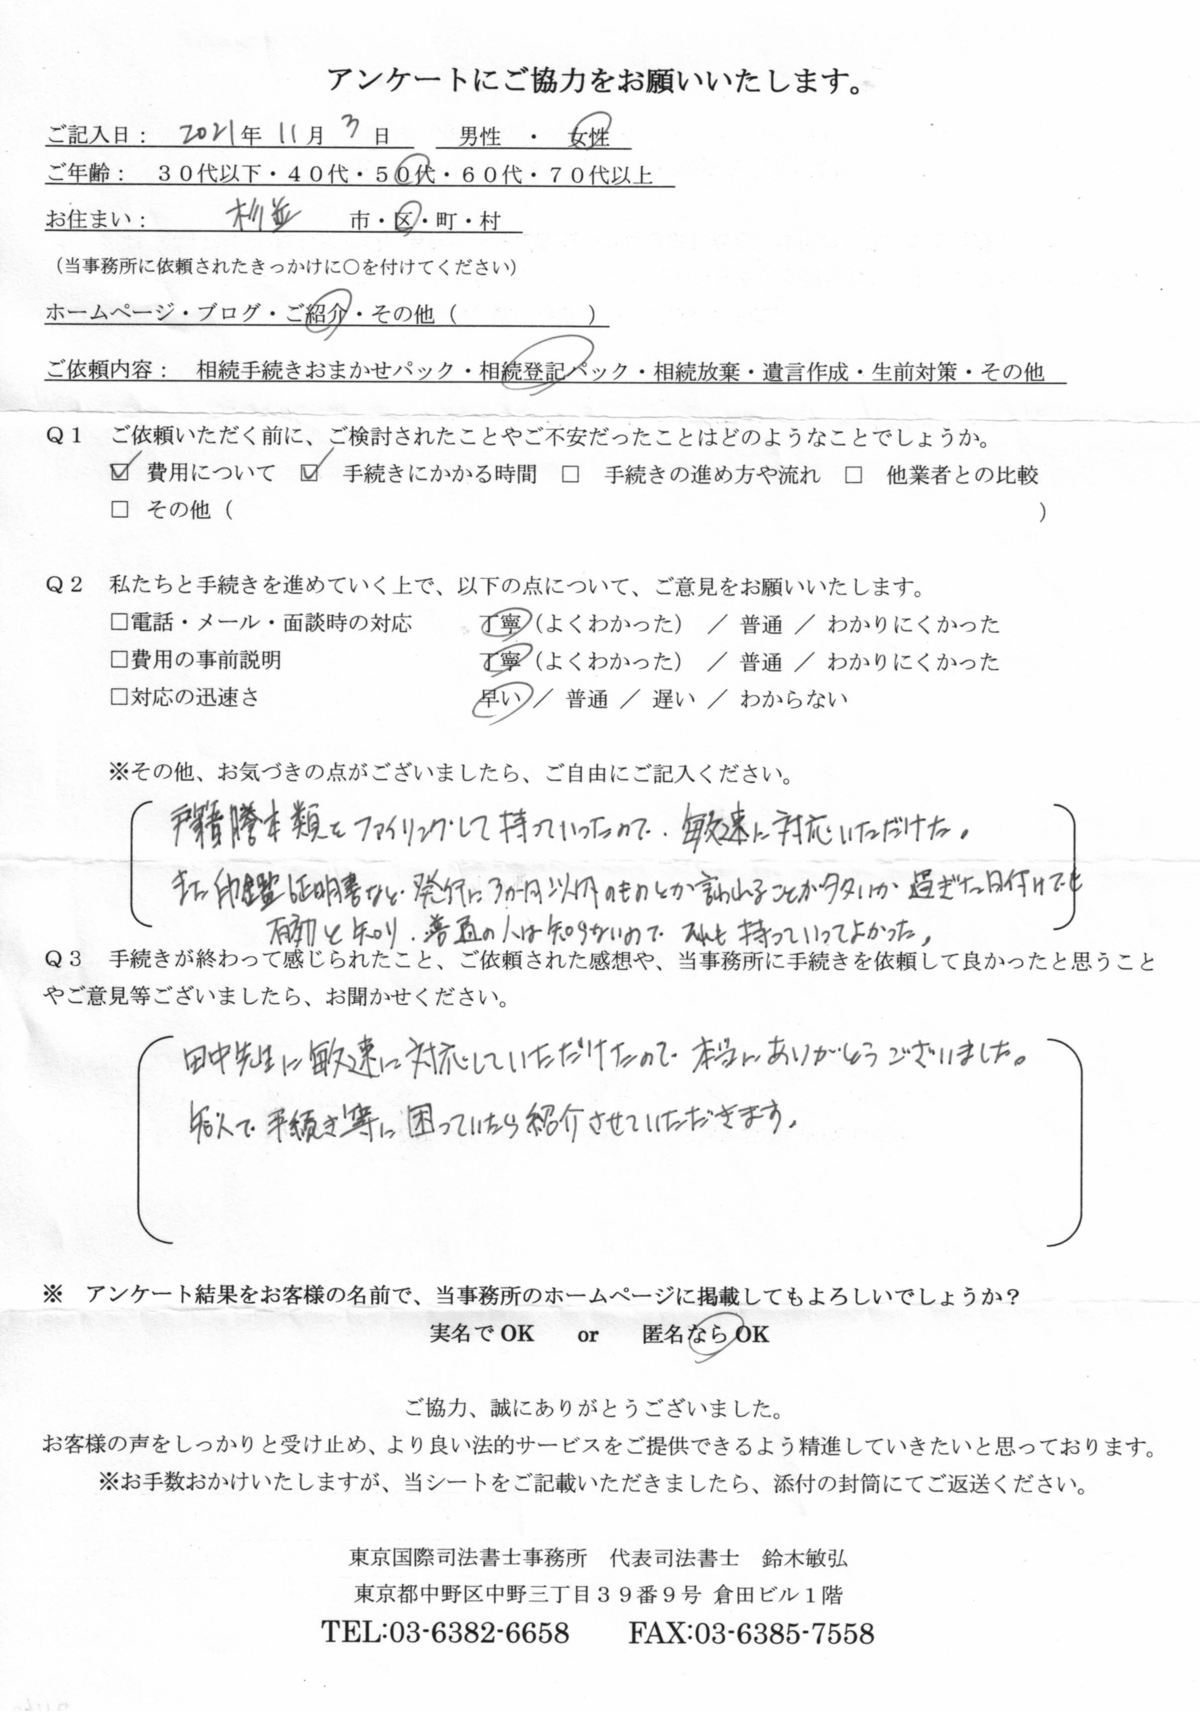 アンケートにご協力をお願いいたします。
ご記入日： 2021年 11月 3日 男性 ・ 女性
ご年齢： 30代以下・40代・50代・60代・70代以上
お住まい： 杉並 市・区・町・村
（当事務所に依頼されたきっかけに○を付けてください）
ホームページ・ブログ・ご紹介・その他（ ）
ご依頼内容： 相続手続きおまかせパック・相続登記パック・相続放棄・遺言作成・生前対策・その他
Q1 ご依頼いただく前に、ご検討されたことやご不安だったことはどのようなことでしょうか。
☑ 費用について ☑ 手続きにかかる時間 □ 手続きの進め方や流れ □ 他業者との比較
□ その他（ ）
Q2 私たちと手続きを進めていく上で、以下の点について、ご意見をお願いいたします。
□電話・メール・面談時の対応 丁寧（よくわかった） ／ 普通 ／ わかりにくかった
□費用の事前説明 丁寧（よくわかった） ／ 普通 ／ わかりにくかった
□対応の迅速さ 早い ／ 普通 ／ 遅い ／ わからない
※その他、お気づきの点がございましたら、ご自由にご記入ください。
戸籍謄本類をファイリングして持っていったので、敏速に対応いただけた。
また印鑑証明書など、発行に3か月以内のものとか言われることが多いが 過ぎた日付けでも
有効と知り、普通の人は知らないので それも持っていってよかった。
Q3 手続きが終わって感じられたこと、ご依頼された感想や、当事務所に手続きを依頼して良かったと思うこと
やご意見等ございましたら、お聞かせください。
田中先生に敏速に対応していただけたので 本当にありがとうございました。
知人で 手続き等に困っていたら紹介させていただきます。
※ アンケート結果をお客様の名前で、当事務所のホームページに掲載してもよろしいでしょうか？
実名でOK or 匿名ならOK
ご協力、誠にありがとうございました。
お客様の声をしっかりと受け止め、より良い法的サービスをご提供できるよう精進していきたいと思っております。
※お手数おかけいたしますが、当シートをご記載いただきましたら、添付の封筒にてご返送ください。
東京国際司法書士事務所 代表司法書士 鈴木敏弘
東京都中野区中野三丁目39番9号 倉田ビル1階
TEL:03-6382-6658 FAX:03-6385-7558